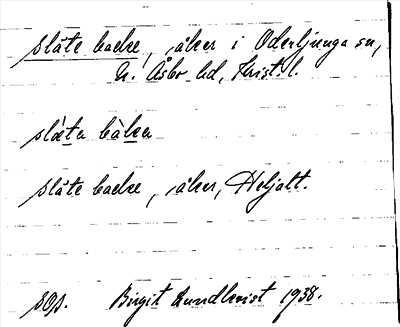 slåte backe, åker i Oderljunga sn,
N. Åsbo hd, Krist. l.
slåta bàka
slåte backe, åker, Heljalt.
sgs. Birgit Lundkvist 1938.